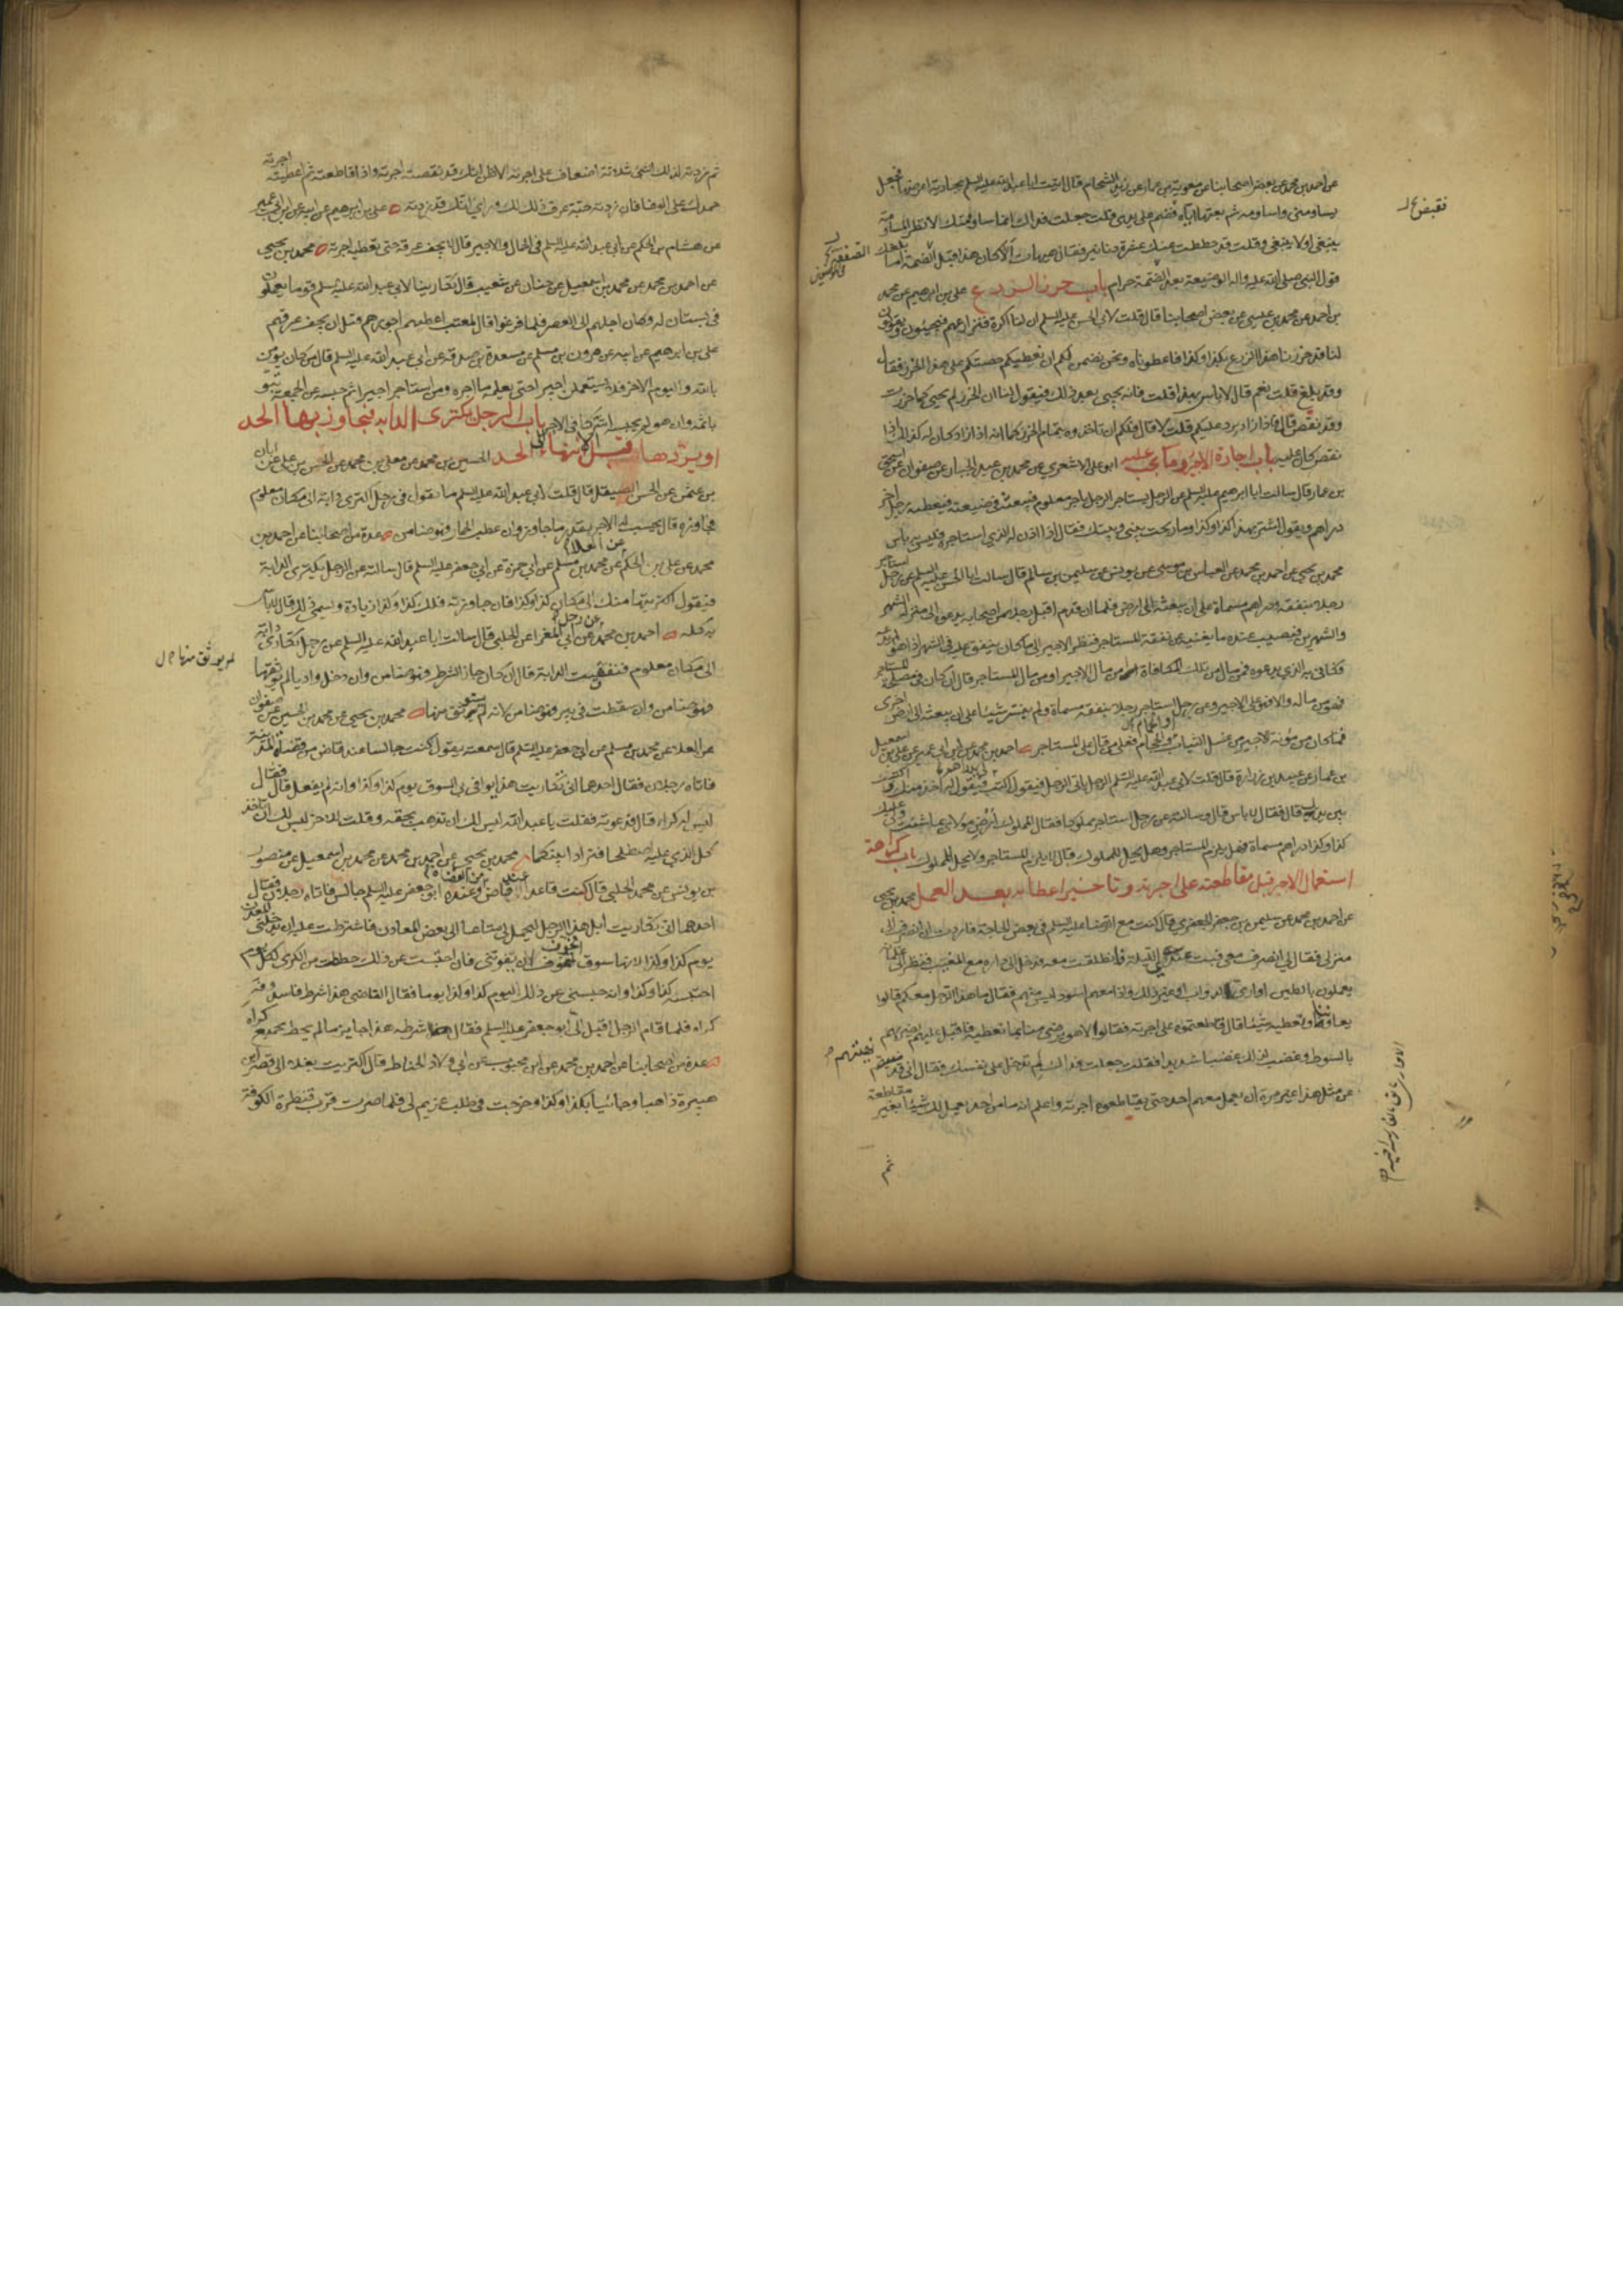 عن احمد بن محمد عن بعض اصحابنا عن معوية بن عمار عن زيد الشحام قال اتيت ابا عبد الله عليه السلم بجارية اعرضها فجعل
يساومنى واساومه ثم بعتها اياه فضم على يدى قلت جعلت فداك انما ساومتك لانظر المساومة
ينبغى او لا ينبغى وقلت قد حططت عنك عشرة دنانير فقال هيهات الا كان هذا قبل الضمة اما بلغك
قول النبى صلى الله عليه واله الوضيعة بعد الضمة حرام باب حرز الزرع على بن ابرهيم عن محمد
بن احمد عن محمد بن عيسى عن بعض اصحابنا قال قلت لابى الحسن عليه السلم ان لنا اكرة فنزارعهم فيجيئون ويقولون
لنا قد حزرنا هذا الزرع بكذا وكذا فاعطوناه ونحن نضمن لكم ان نعطيكم حصتكم على هذا الحزر فقال
وقد بلغ قلت نعم قال لا باس بهذا قلت فانه يجيى بعد ذلك فيقول لنا ان الحزر لم يجيى كما حزرت
وقد نقص قال فاذا زاد يرد عليكم قلت لا قال فلكم ان تاخذوه بتمام الحزر كما انه اذا زاد كان له كذلك اذا
نقص كان عليه باب اجارة الاجير وما يجب عليه ابو على الاشعرى عن محمد بن عبد الجبار عن صفوان عن اسحق
بن عمار قال سالت ابا ابرهيم عليه السلم عن الرجل يستاجر الرجل باجر معلوم فيبعثه فى ضيعته فيعطيه رجل اخر
دراهم ويقول اشتر بهذا كذا وكذا وما ربحت بينى وبينك فقال اذا اذن له الذى استاجره فليس به باس
محمد بن يحيى عن احمد بن محمد عن العباس بن موسى عن يونس عن سليمن بن سالم قال سالت ابا الحسن عليه السلم عن رجل استاجر
رجلا بنفقة ودراهم مسماة على ان يبعثه الى ارض فلما ان قدم اقبل رجل من اصحابه يدعوه الى منزله الشهر
والشهرين فيصيب عنده ما يغنيه عن نفقة المستاجر فنظر الاجير الى ما كان ينفق عليه فى الشهر اذا هو لم يدعه
فكافى به الذى يدعوه فمن مال من تلك المكافاة امن مال الاجير او من مال المستاجر قال ان كان فى مصلحة المستاجر
فهو من ماله والا فهو على الاجير وعن رجل استاجر رجلا بنفقة مسماة ولم يفسر شيئا على ان يبعثه الى ارض اخرى
فما كان من مؤنة الاجير من غسل الثياب او الحمام فعلى من قال على المستاجر احمد بن محمد عن ابن ابى عمير عن على بن اسمعيل
بن عمار عن عبيد بن زرارة قال قلت لابى عبد الله عليه السلم الرجل ياتى الرجل فيقول اكتب لى بدراهم فيقول له اخذ منك واكتب
بين يديه قال فقال لا باس قال وسالته عن رجل استاجر مملوكا فقال المملوك ارض مولاى بما شئت ولى عليك
كذا وكذا دراهم مسماة فهل يلزم المستاجر وهل يحل للمملوك قال لا يلزم المستاجر ولا يحل للمملوك باب كراهة
استعمال الاجير قبل مقاطعته على اجرته وتاخير اعطائه بعد العمل محمد بن يحيى
عن احمد بن محمد عن سليمن بن جعفر الجعفرى قال كنت مع الرضا عليه السلم فى بعض الحاجة فاردت ان انصرف الى
منزلى فقال لى انصرف معى فبت عندى الليلة فانطلقت معه فدخل الى داره مع المغيب فنظر الى غلمانه
يعملون بالطين اوارى الدواب او غير ذلك واذا معهم اسود ليس منهم فقال ما هذا الرجل معكم قالوا
يعاوننا ونعطيه شيئا قال قاطعتموه على اجرته فقالوا لا هو يرضى منا بما نعطيه فاقبل عليهم يضربهم
بالسوط وغضب لذلك غضبا شديدا فقلت جعلت فداك لم تدخل على نفسك فقال انى قد نهيتهم
عن مثل هذا غير مرة ان يعمل معهم احد حتى يقاطعوه اجرته واعلم انه ما من احد يعمل لك شيئا بغير مقاطعة
ثم
ثم زدته لذلك الشئ ثلاثة اضعاف على اجرته الا ظن انك قد نقصت اجرته واذا قاطعته ثم اعطيته اجرته
حمدك على الوفا فان زدته حبة عرف ذلك لك وراى انك قد زدته على بن ابرهيم عن ابيه عن ابن ابى عمير
عن هشام بن الحكم عن ابى عبد الله عليه السلم فى الحمال والاجير قال لا يجف عرقه حتى يعطيه اجرته محمد بن يحيى
عن احمد بن محمد عن محمد بن اسمعيل عن حنان عن شعيب قال تكارينا لابى عبد الله عليه السلم قوما يعملون
فى بستان له وكان اجلهم الى العصر فلما فرغوا قال لمعتب اعطهم اجورهم قبل ان يجف عرقهم
على بن ابرهيم عن ابيه عن هرون بن مسلم عن مسعدة بن صدقة عن ابى عبد الله عليه السلم قال من كان يؤمن
بالله واليوم الاخر فلا يستعملن اجيرا حتى يعلمه ما اجره ومن استاجر اجيرا ثم حبسه عن الجمعة تبوء
باثمه وان هو لم يحبسه اشتركا فى الاجر باب الرجل يكترى الدابة فيجاوز بها الحد
او يردها قبل الانتهاء الى الحد الحسين بن محمد عن معلى بن محمد عن الحسن بن على عن ابان
بن عثمن عن الحسن الصيقل قال قلت لابى عبد الله عليه السلم ما تقول فى رجل اكترى دابة الى مكان معلوم
فجاوزه قال يحسب له الاجر بقدر ما جاوز وان عطب الحمار فهو ضامن عدة من اصحابنا عن احمد بن
محمد عن على بن الحكم عن العلا عن محمد بن مسلم عن ابى حمزة عن ابى جعفر عليه السلم قال سالته عن الرجل يكترى الدابة
فيقول اكتريتها منك الى مكان كذا وكذا فان جاوزته فلك كذا وكذا زيادة ويسمى ذلك قال لا باس
به كله احمد بن محمد عن رجل عن ابى المغرا عن الحلبى قال سالت ابا عبد الله عليه السلم عن رجل تكارى دابة
الى مكان معلوم فنفقت الدابة قال ان كان جاز الشرط فهو ضامن وان دخل واديا لم يوثقها
فهو ضامن وان سقطت فى بير فهو ضامن لانه لم يستوثق منها محمد بن يحيى عن محمد بن الحسين عن صفوان
عن العلا عن محمد بن مسلم عن ابى جعفر عليه السلم قال سمعته يقول كنت جالسا عند قاض من قضاة المدينة
فاتاه رجلان فقال احدهما انى تكاريت هذا يوافى بى السوق يوم كذا وكذا وانه لم يفعل قال فقال
ليس له كراء قال فدعوته فقلت يا عبد الله ليس لك ان تذهب بحقه وقلت للاخر ليس لك ان تاخذ
كل الذى عليه اصطلحا فترادا بينكما محمد بن يحيى عن احمد بن محمد عن محمد بن اسمعيل عن منصور
بن يونس عن محمد الحلبى قال كنت قاعدا عند قاض من القضاة وعنده ابو جعفر عليه السلم جالس فاتاه رجلان فقال
احدهما انى تكاريت ابل هذا الرجل ليحمل لى متاعا الى بعض المعادن فاشترطت عليه ان يدخلنى المعدن
يوم كذا وكذا لانها سوق اتخوف ان يفوتنى فان احتبست عن ذلك حططت من الكرى لكل يوم
احتبسته كذا وكذا وانه حبسنى عن ذلك اليوم كذا وكذا يوما فقال القاضى هذا شرط فاسد وفه
كراه فلما قام الرجل اقبل الى ابو جعفر عليه السلم فقال شرطه هذا جايز ما لم يحط بجميع كراه
عدة من اصحابنا عن احمد بن محمد عن ابن محبوب عن ابى ولاد الحناط قال اكتريت بغلا الى قصر ابن
هبيرة ذاهبا وجائيا بكذا وكذا وخرجت فى طلب غريم لى فلما صرت قرب قنطرة الكوفة